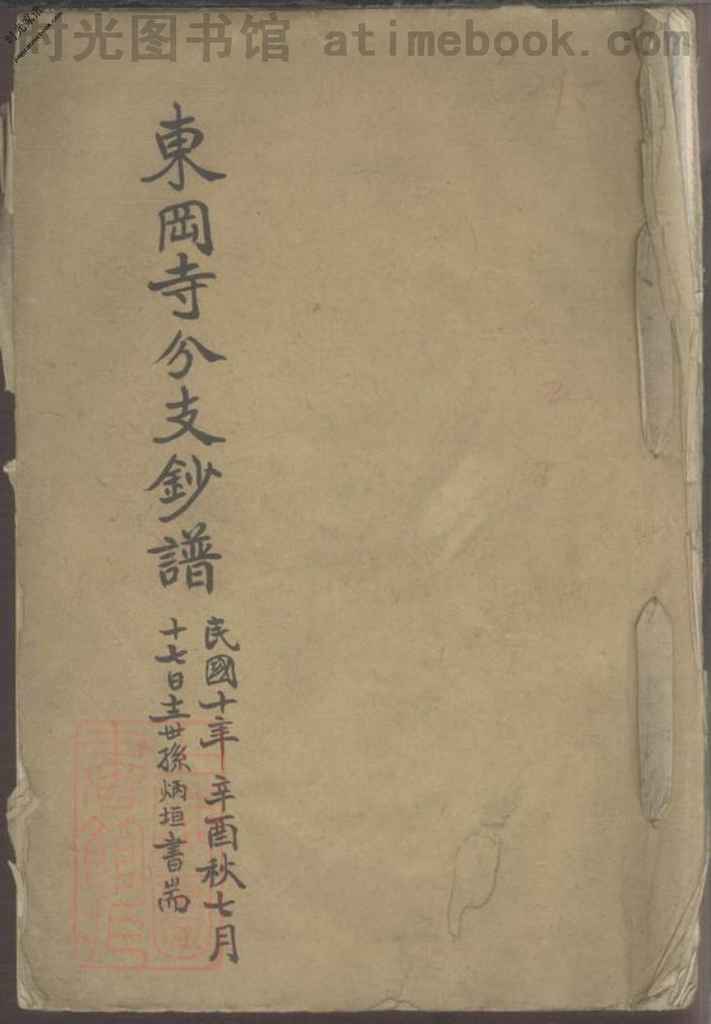 时光图书馆 atimebook.com
東岡寺分支鈔譜
民國十年辛酉秋七月
十七日主世孫炳垣書耑